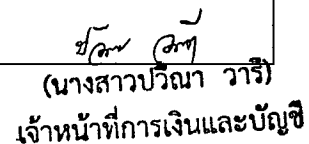 (นางสาวปวีณา วารี)
เจ้าหน้าที่การเงินและบัญชี